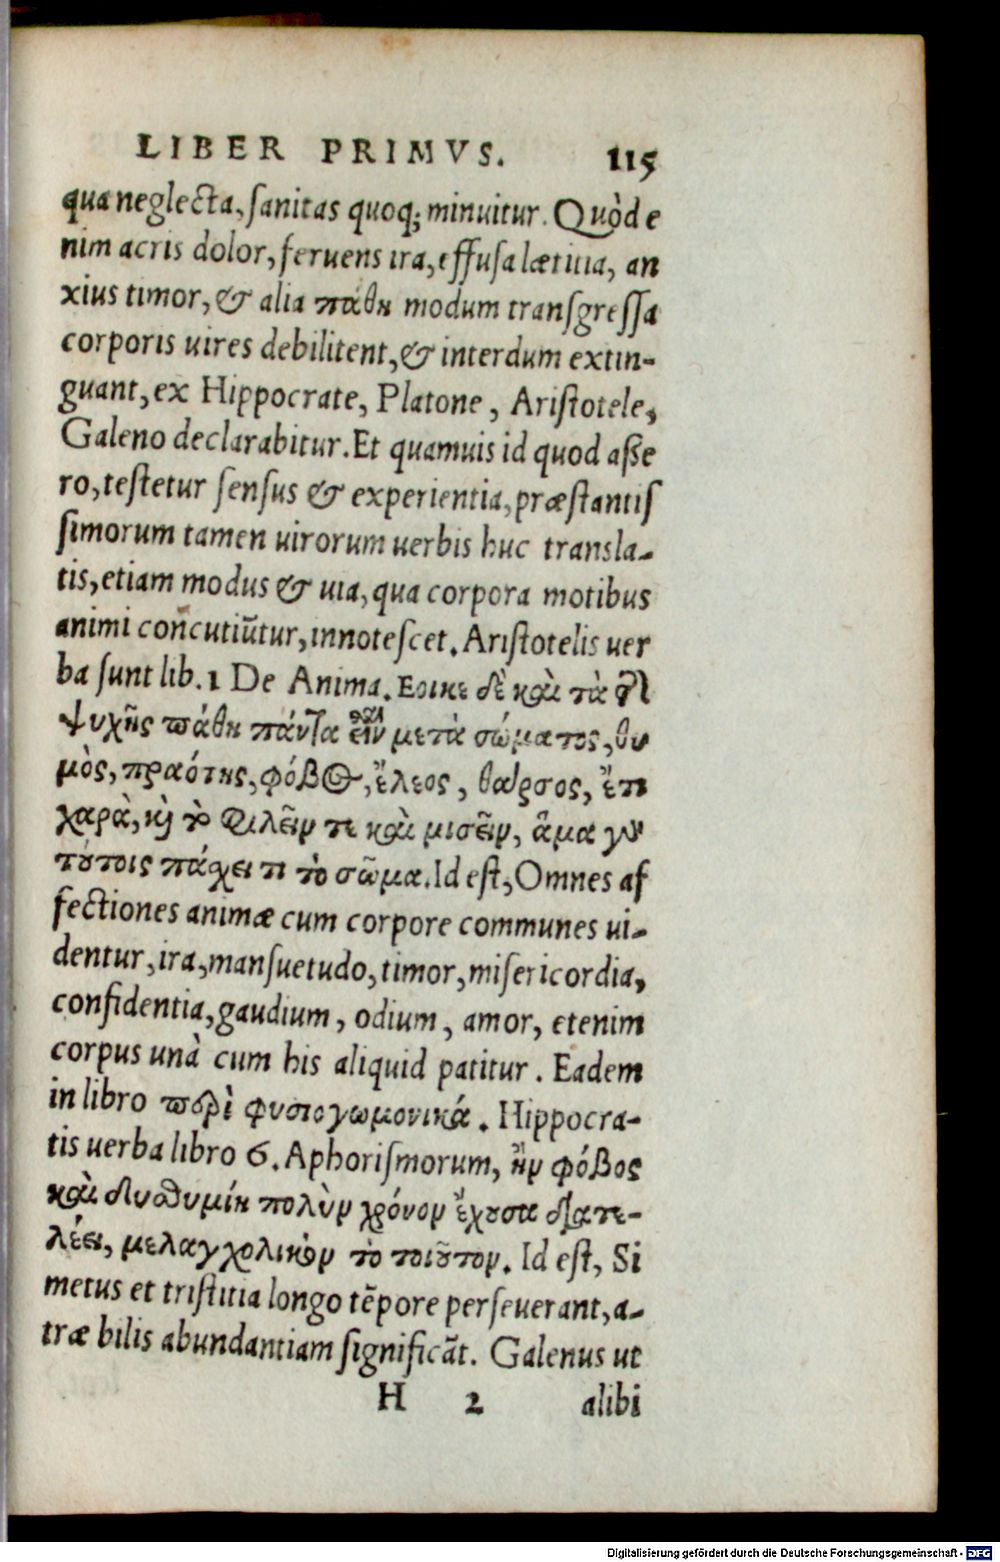 LIBER PRIMVS. 115
qua neglecta, sanitas quoq; minuitur. Quòd e
nim acris dolor, feruens ira, effusa lætitia, an
xius timor, & alia πάθη modum transgressa
corporis uires debilitent, & interdum extin-
guant, ex Hippocrate, Platone, Aristotele,
Galeno declarabitur. Et quamuis id quod asse
ro, testetur sensus & experientia, præstantis
simorum tamen uirorum uerbis huc transla-
tis, etiam modus & uia, qua corpora motibus
animi concutiũtur, innotescet. Aristotelis uer
ba sunt lib. 1 De Anima. Εοικε δὲ καὶ τὰ τῆς
ψυχῆς πάθη πάντα εἶναι μετὰ σώματος, θυ
μὸς, πραότης, φόβος, ἔλεος, θάρσος, ἔτι
χαρὰ, καὶ τὸ φιλεῖν τε καὶ μισεῖν, ἅμα γὰρ
τούτοις πάχει τι τὸ σῶμα. Id est, Omnes af
fectiones animæ cum corpore communes ui-
dentur, ira, mansuetudo, timor, misericordia,
confidentia, gaudium, odium, amor, etenim
corpus unà cum his aliquid patitur. Eadem
in libro περὶ φυσιογωμονικά. Hippocra-
tis uerba libro 6. Aphorismorum, ἢν φόβος
καὶ δυσθυμίη πολὺν χρόνον ἔχουσα διατε-
λέει, μελαγχολικὸν τὸ τοιοῦτον. Id est, Si
metus et tristitia longo tẽpore perseuerant, a-
træ bilis abundantiam significãt. Galenus ut
H 2 alibi
Digitalisierung gefördert durch die Deutsche Forschungsgemeinschaft - DFG